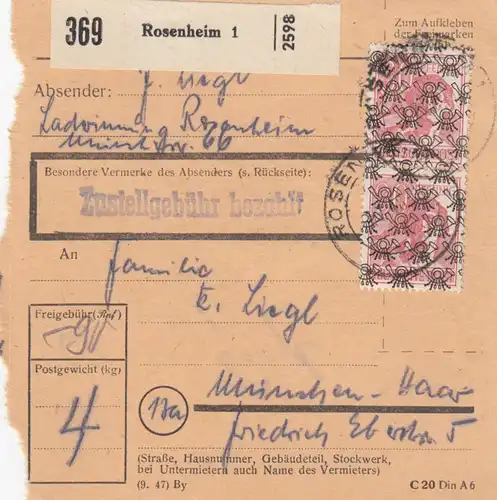 369 Rosenheim 1 2598
Zum Aufkleben
der Freimarken
Absender: J. Liegl
Rosenheim
66
Besondere Vermerke des Absenders (s. Rückseite):
Zustellgebühr bezahlt
ROSEN
An Familie
K. Liegl
Freigebühr (Rpf)
90
Postgewicht (kg)
4
13a
München-Haar
Friedrich Ebertstr. 5
(Straße, Hausnummer, Gebäudeteil, Stockwerk,
bei Untermietern auch Name des Vermieters)
(9. 47) By C 20 Din A 6